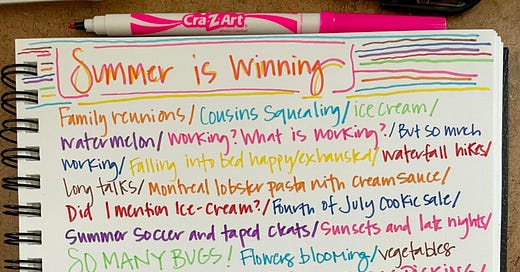 Cra-Z-Art
Summer is Winning
Family reunions / Cousins Squealing / ice cream /
watermelon / working? What is working? / But so much
working / Falling into bed happy/exhausted / waterfall hikes /
Long talks / Montreal lobster pasta with cream sauce /
Did I mention Ice-Cream? / Fourth of July Cookie Sale /
Summer Soccer and taped cleats / Sunsets and late nights /
SO MANY BUGS! Flowers blooming / vegetables
PICKING /